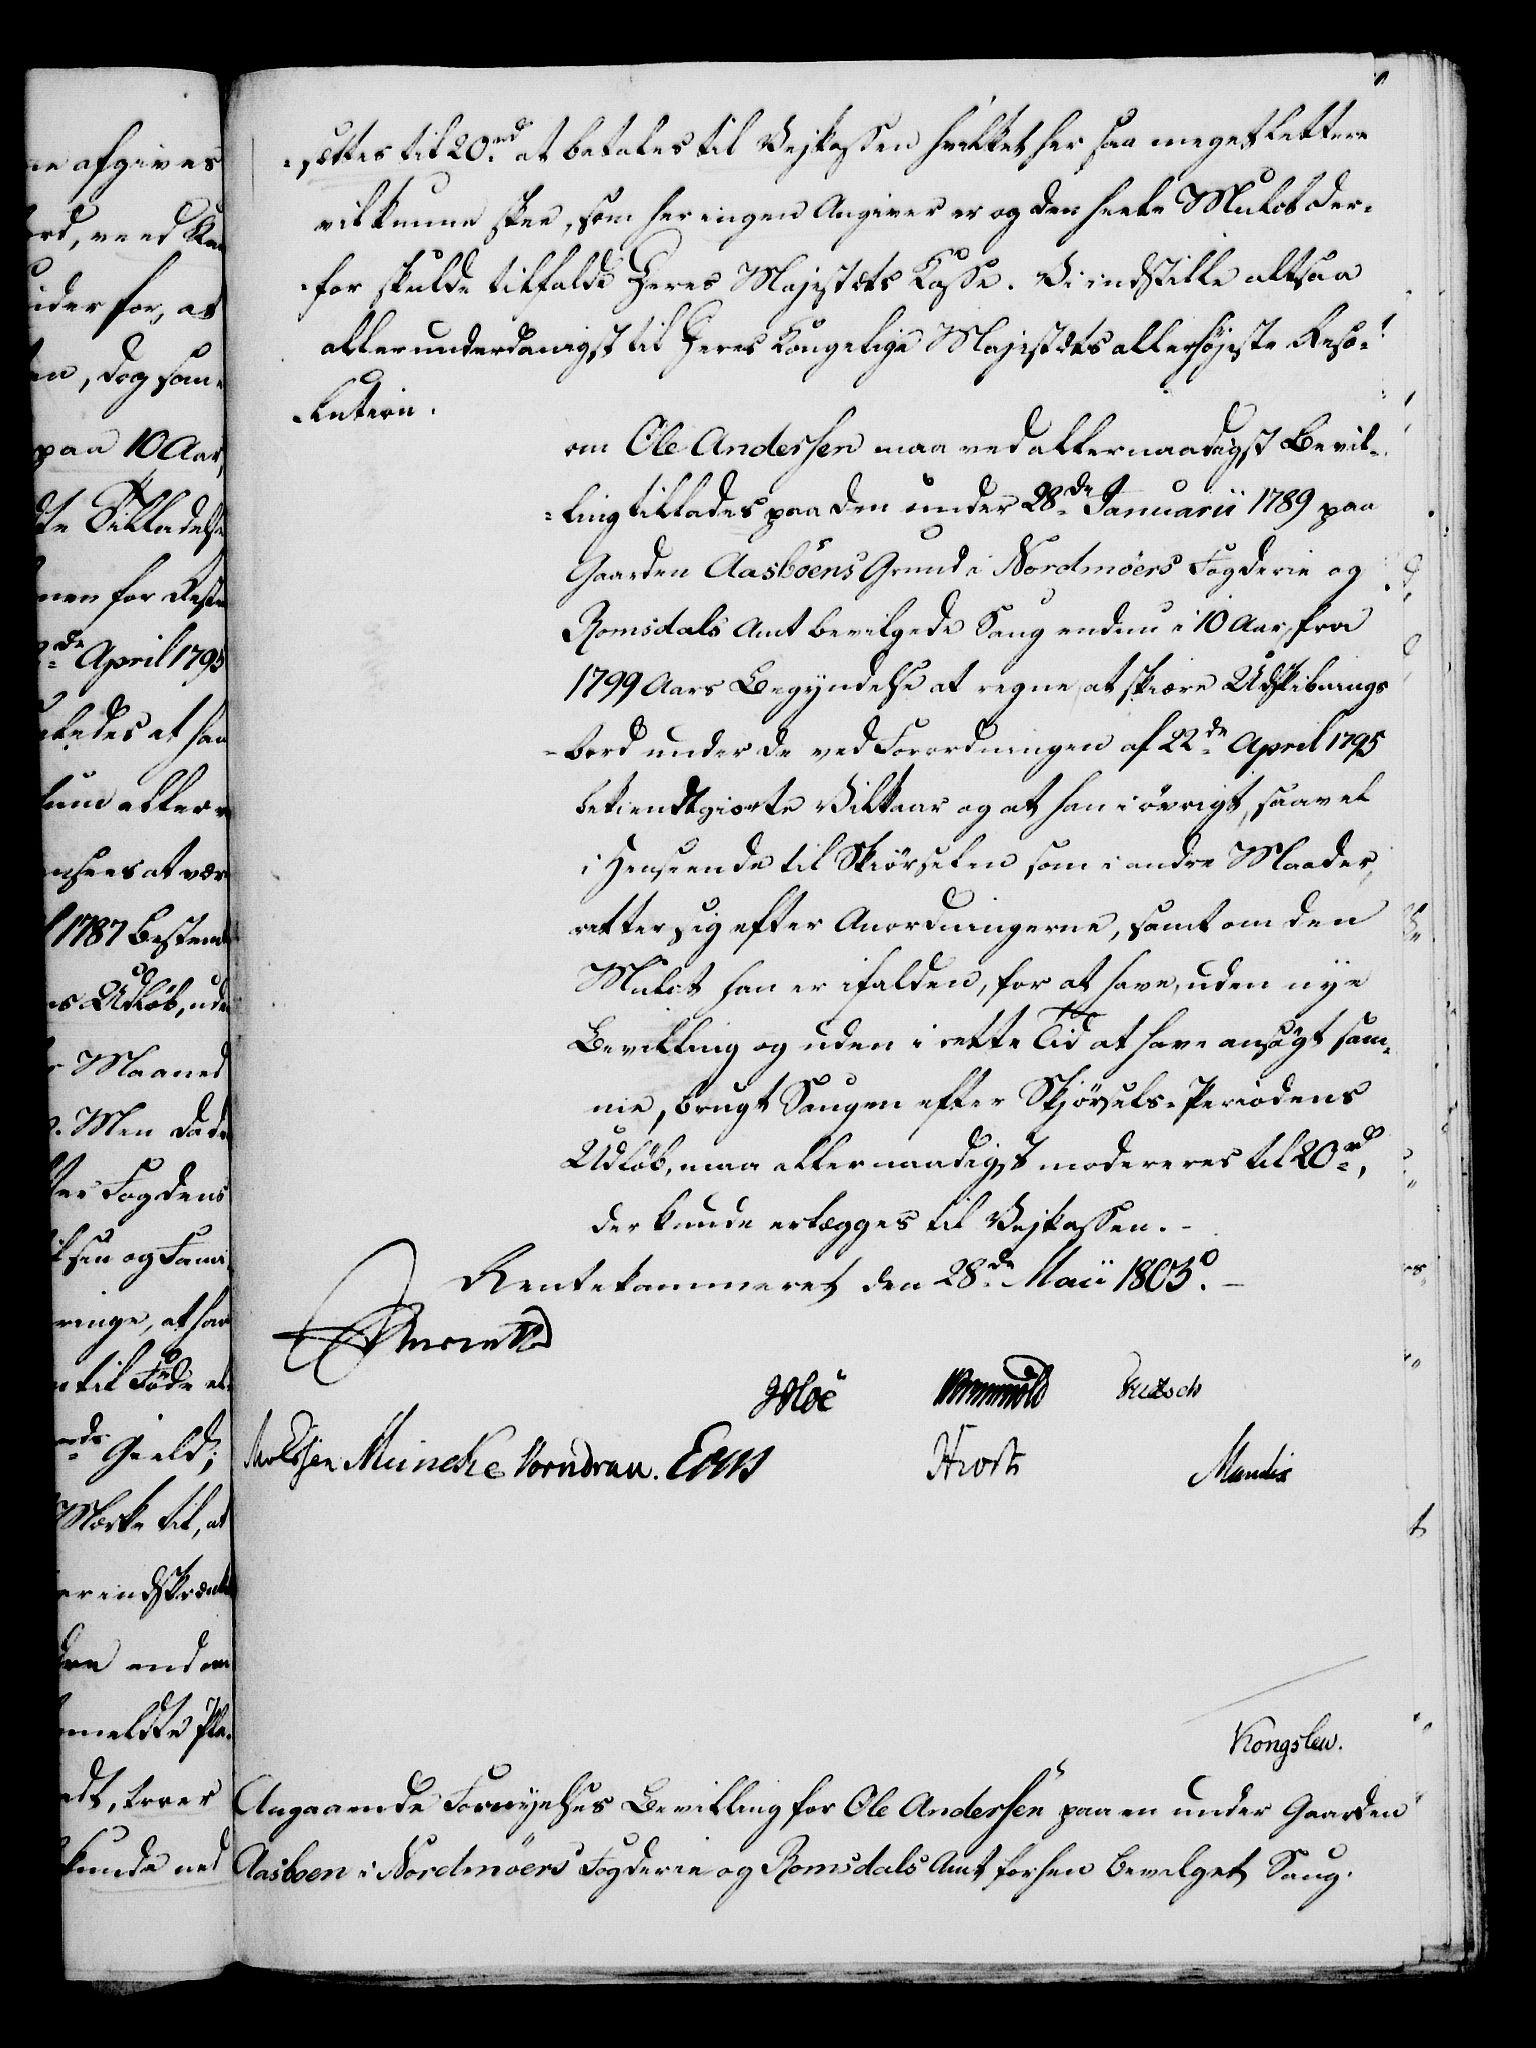 -sættes til 20 rd at betales til Vejkassen hvilket her saa meget lettere
vil kunne skee, som her ingen Angiver er og den heele Mulct der-
-for skulde tilfalde Deres Majestæts Kasse. Vi indstille altsaa
allerunderdanigst til Deres Kongelige Majestæts allerhøjeste Reso-
-lution.
om Ole Andersen maa ved allernaadigst Bevil-
-ling tillades paa den under 28de Januarii 1789 paa
Gaarden Aasböens Grund i Nordmöers Fogderie og
Romsdals Amt bevilgede Saug endnu i 10 Aar, fra
1799 Aars Begyndelse at regne, at skiære Udskibnings
-bord under de ved Forordningen af 22de April 1795
bekiendtgiorte Vilkaar og at han i övrigt, saavel
i Henseende til Skiörselen som i andre Maader,
retter sig efter Anordningerne, samt om den
Mulct han er ifalden, for at have, uden nye
Bevilling og uden i rette Tid at have ansögt sam-
me, brugt Saugen efter Skjörsels-Periodens
Udlöb, maa allernaadigst modereres til 20 rd,
der kunde erlægges til Vejkassen.-
Rentekammeret den 28de Maii 1803.-
Moe
Meincke Vorndran.
Kongslew.
Angaaende Fornyelses Bevilling for Ole Andersen paa en under Gaarden
Aasboen i Nordmöers Fogderie og Romsdals Amt forhen bevilget Saug.